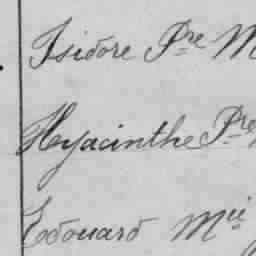 Isidore Pre M
Hyacinthe Pre
Edouard Mii